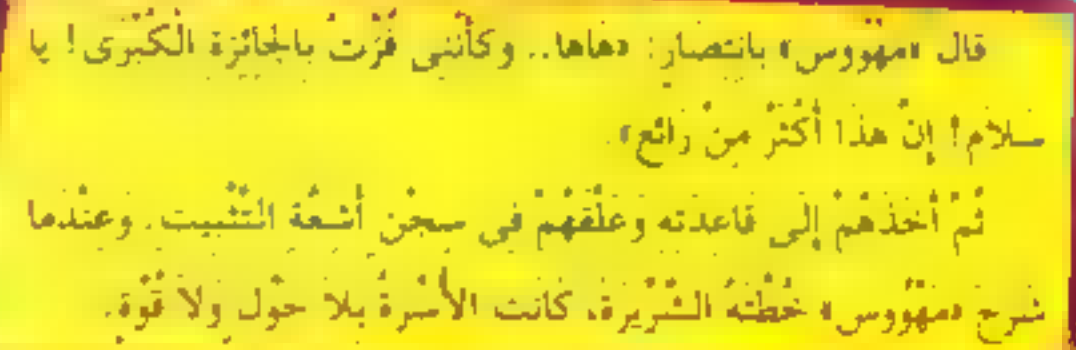 قال «مهووس» بانتصارٍ: «هاها.. وكأننى فُزْتُ بالجائزة الْكُبْرَى! يا
سَلامُ! إنَّ هذا أَكْثَرُ مِنْ رَائعٍ».
ثُمَّ أَخَذَهُمْ إلَى قَاعدَته وَعَلَّقَهُمْ فى سِجْنِ أَشعَّةِ التَّثْبيت. وَعنْدَما
شَرحَ «مَهْوُوس» خُطَّتَهُ الشِّرِّيرةَ، كَانَت الأُسْرةُ بلاَ حَوْلٍ وَلاَ قُوَّةٍ.